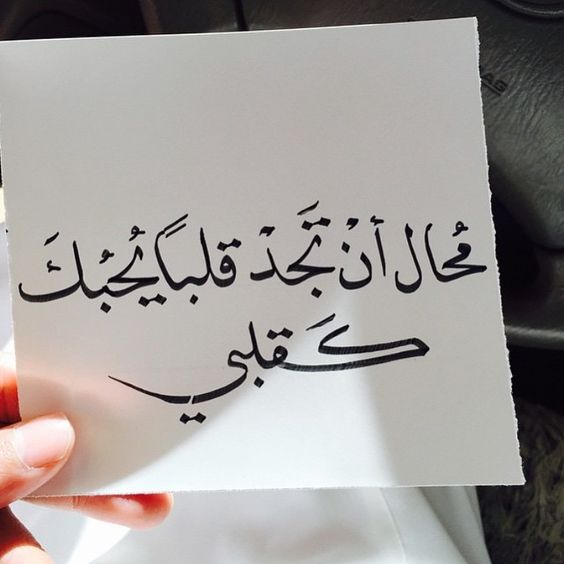 مُحال أنْ تَجدْ قلباً يُحبُكَ
كَقلبي